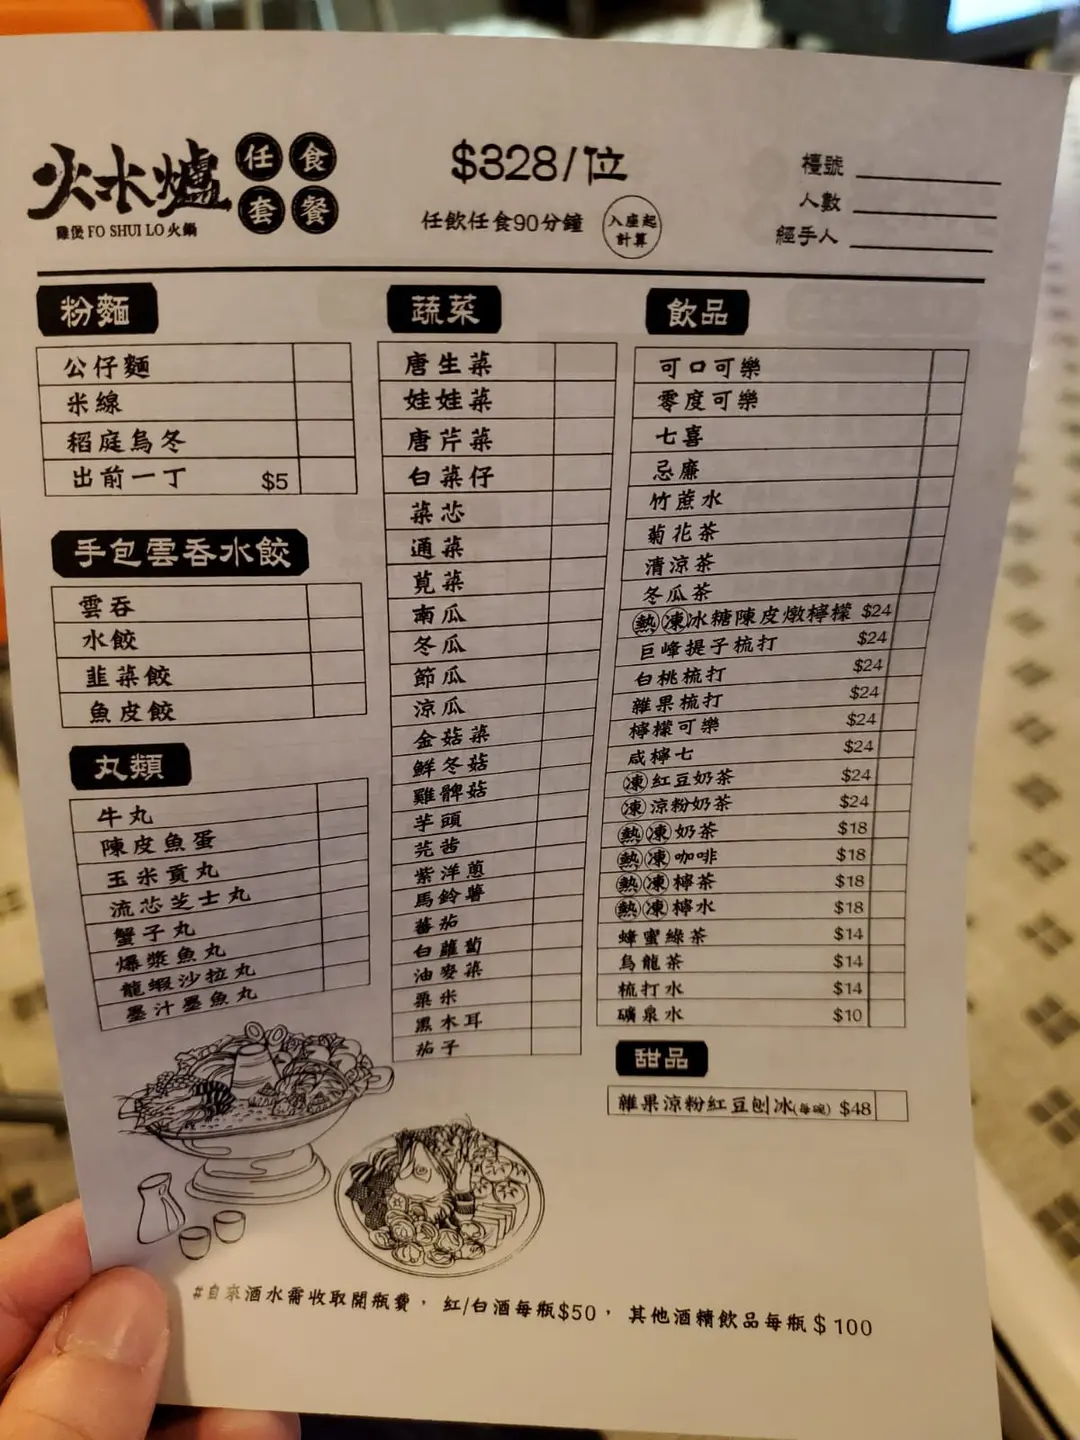 火水爐
任食套餐
雞煲 FO SHUI LO 火鍋
$328/位
任飲任食90分鐘
入座起計算
檯號
人數
經手人
粉麵
公仔麵
米線
稻庭烏冬
出前一丁 $5
手包雲吞水餃
雲吞
水餃
韭菜餃
魚皮餃
丸類
牛丸
陳皮魚蛋
玉米貢丸
流芯芝士丸
蟹子丸
爆漿魚丸
龍蝦沙拉丸
墨汁墨魚丸
蔬菜
唐生菜
娃娃菜
唐芹菜
白菜仔
菜芯
通菜
莧菜
南瓜
冬瓜
節瓜
涼瓜
金菇菜
鮮冬菇
雞髀菇
芋頭
芫茜
紫洋蔥
馬鈴薯
蕃茄
白蘿蔔
油麥菜
粟米
黑木耳
茄子
飲品
可口可樂
零度可樂
七喜
忌廉
竹蔗水
菊花茶
清涼茶
冬瓜茶
熱 凍 冰糖陳皮燉檸檬 $24
巨峰提子梳打 $24
白桃梳打 $24
雜果梳打 $24
檸檬可樂 $24
咸檸七 $24
凍 紅豆奶茶 $24
凍 涼粉奶茶 $24
熱 凍 奶茶 $18
熱 凍 咖啡 $18
熱 凍 檸茶 $18
熱 凍 檸水 $18
蜂蜜綠茶 $14
烏龍茶 $14
梳打水 $14
礦泉水 $10
甜品
雜果涼粉紅豆刨冰(每碗) $48
#自來酒水需收取開瓶費，紅/白酒每瓶$50，其他酒精飲品每瓶$100